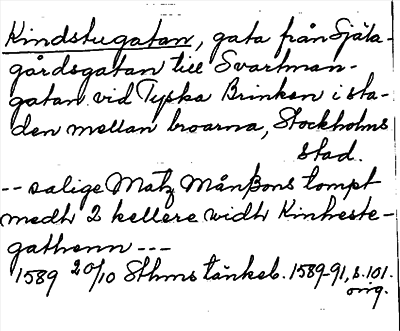 Kindstugatan, gata från Själa-
gårdsgatan till Svartman-
gatan vid Tyska Brinken i sta-
den mellan broarna, Stockholms
stad.
-- salige Matz Månßons tompt
medh 2 kellere widh Kinheste-
gathenn ---
1589 20/10 Sthms tänkeb. 1589-91, s. 101.
orig.